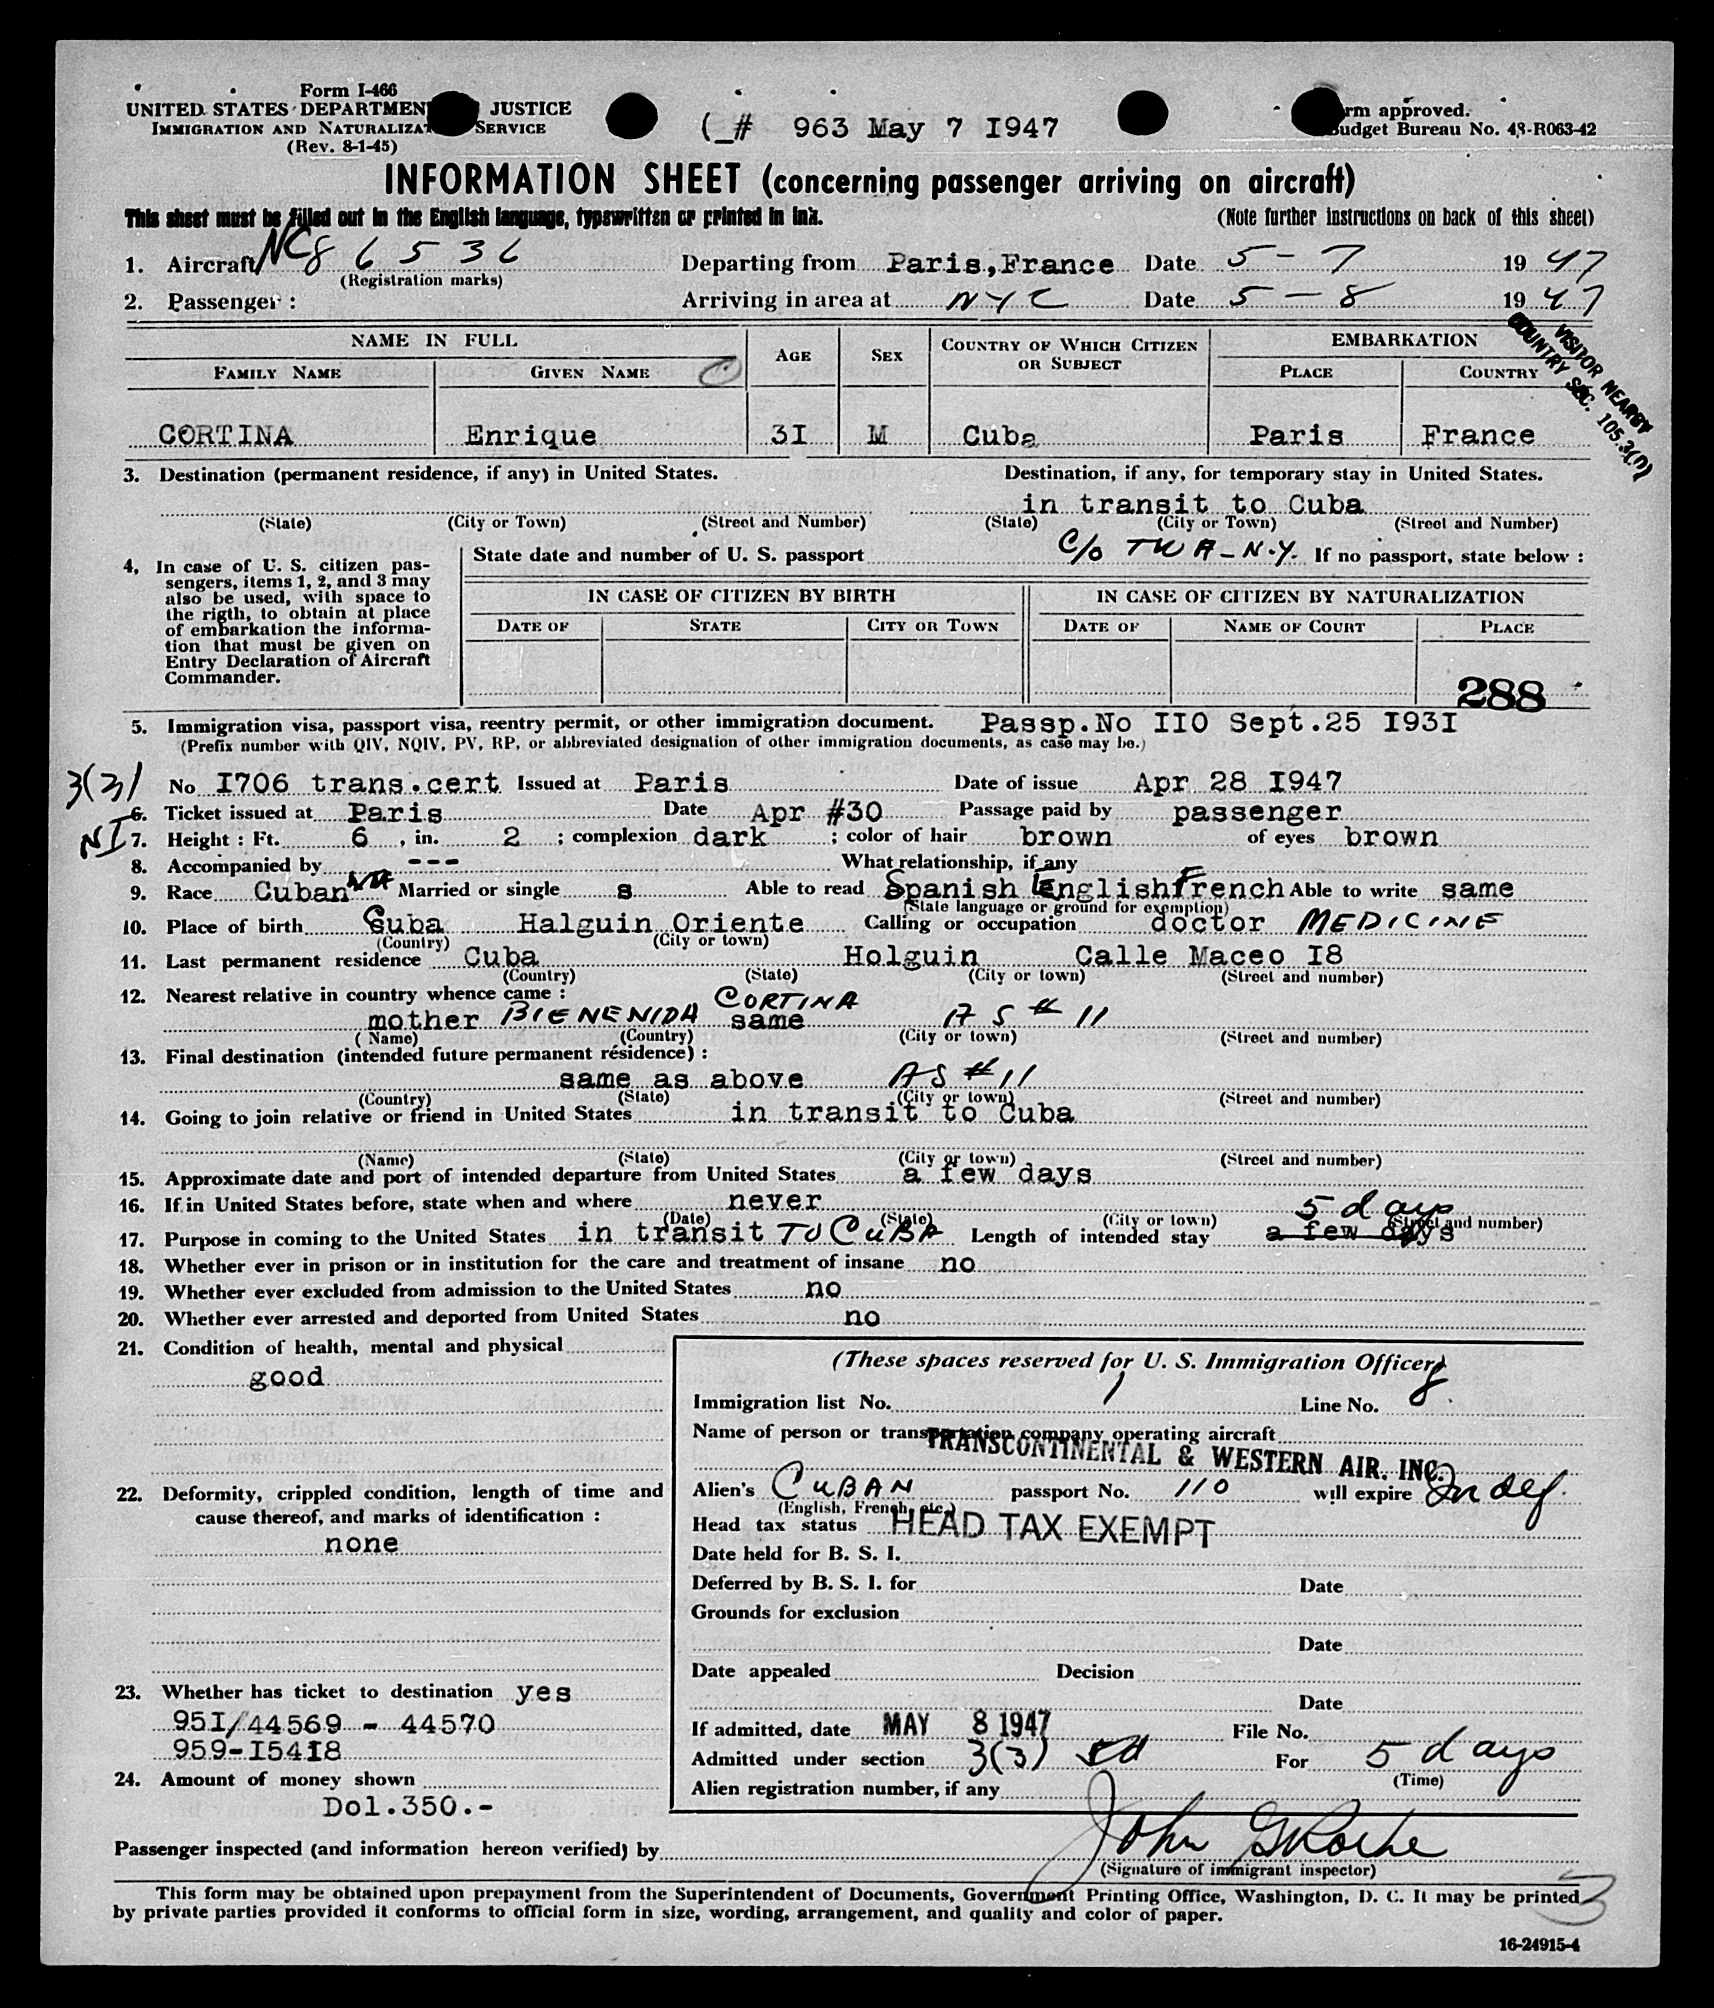 Form I-466
UNITED STATES DEPARTMENT JUSTICE
IMMIGRATION AND NATURALIZAT SERVICE
(Rev. 8-1-45)
(_# 963 May 7 I947
rm approved.
udget Bureau No. 43-R063-42
INFORMATION SHEET (concerning passenger arriving on aircraft)
This sheet must be filled out in the English language, typewritten or printed in ink.
(Note further instructions on back of this sheet)
1. Aircraft NC86536 Departing from Paris,France Date 5-7 1947
(Registration marks)
2. Passenger : Arriving in area at NYC Date 5-8 1947
VISITOR NEARBY
COUNTRY SEC. 105.3(D)
NAME IN FULL AGE SEX COUNTRY OF WHICH CITIZEN OR SUBJECT EMBARKATION
FAMILY NAME GIVEN NAME PLACE COUNTRY
CORTINA Enrique 3I M Cuba Paris France
3. Destination (permanent residence, if any) in United States. Destination, if any, for temporary stay in United States.
in transit to Cuba
(State) (City or Town) (Street and Number) (State) (City or Town) (Street and Number)
C/o TWA-N.Y.
4, In case of U. S. citizen pas-
sengers, items 1, 2, and 3 may
also be used, with space to
the rigth, to obtain at place
of embarkation the informa-
tion that must be given on
Entry Declaration of Aircraft
Commander.
State date and number of U. S. passport If no passport, state below :
IN CASE OF CITIZEN BY BIRTH IN CASE OF CITIZEN BY NATURALIZATION
DATE OF STATE CITY OR TOWN DATE OF NAME OF COURT PLACE
288
5. Immigration visa, passport visa, reentry permit, or other immigration document. Passp.No II0 Sept.25 I93I
(Prefix number with QIV, NQIV, PV, RP, or abbreviated designation of other immigration documents, as case may be.)
3(3) No I706 trans.cert Issued at Paris Date of issue Apr 28 I947
6. Ticket issued at Paris Date Apr #30 Passage paid by passenger
NI 7. Height : Ft. 6 , in. 2 ; complexion dark ; color of hair brown of eyes brown
8. Accompanied by --- What relationship, if any
9. Race Cuban Married or single s Able to read Spanish English French Able to write same
(State language or ground for exemption)
10. Place of birth Cuba Halguin Oriente Calling or occupation doctor MEDICINE
(Country) (City or town)
11. Last permanent residence Cuba Holguin Calle Maceo I8
(Country) (State) (City or town) (Street and number)
12. Nearest relative in country whence came :
mother BIENENIDA CORTINA same AS #11
( Name) (Country) (City or town) (Street and number)
13. Final destination (intended future permanent résidence) :
same as above AS #11
(Country) (State) (City or town) (Street and number)
14. Going to join relative or friend in United States in transit to Cuba
(Name) (State) (City or town) (Street and number)
15. Approximate date and port of intended departure from United States a few days
16. If in United States before, state when and where never
(Date) (State) (City or town) (Street and number)
5 days
17. Purpose in coming to the United States in transit TO CUBA Length of intended stay a few days
18. Whether ever in prison or in institution for the care and treatment of insane no
19. Whether ever excluded from admission to the United States no
20. Whether ever arrested and deported from United States no
21. Condition of health, mental and physical
good
22. Deformity, crippled condition, length of time and
cause thereof, and marks of identification :
none
23. Whether has ticket to destination yes
95I/44569 - 44570
959-I54I8
24. Amount of money shown
Dol.350.-
(These spaces reserved for U. S. Immigration Officer)
Immigration list No. 1 Line No. 8.
Name of person or transportation company operating aircraft
TRANSCONTINENTAL & WESTERN AIR, INC.
Alien's CUBAN passport No. 110 will expire Indef.
(English, French, etc.)
Head tax status HEAD TAX EXEMPT
Date held for B. S. I.
Deferred by B. S. I. for Date
Grounds for exclusion
Date
Date appealed Decision
Date
If admitted, date MAY 8 1947 File No.
Admitted under section 3(3) For 5 days
(Time)
Alien registration number, if any
Passenger inspected (and information hereon verified) by John G Roche
(Signature of immigrant inspector)
This form may be obtained upon prepayment from the Superintendent of Documents, Government Printing Office, Washington, D. C. It may be printed
by private parties provided it conforms to official form in size, wording, arrangement, and quality and color of paper.
3
16-24915-4